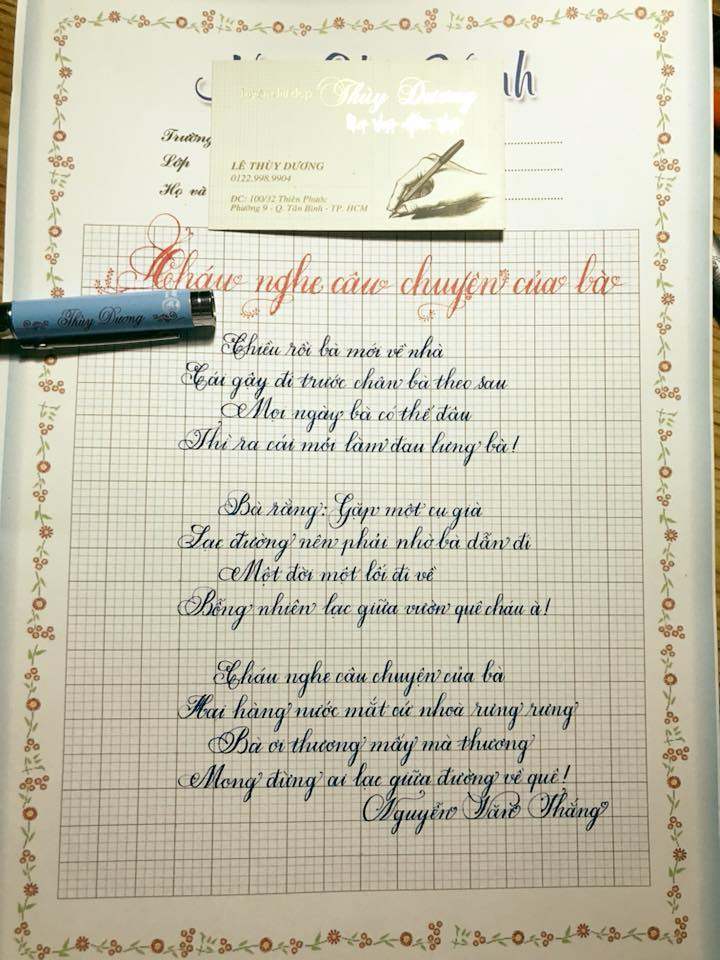 Luyện chữ đẹp Thùy Dương
LÊ THÙY DƯƠNG
0122.998.9904
ĐC: 100/32 Thiên Phước
Phường 9 - Q. Tân Bình - TP. HCM
Trường
Lớp
Họ và
Cháu nghe câu chuyện của bà
Thùy Dương
Chiều rồi bà mới về nhà
Cái gậy đi trước chân bà theo sau
Mọi ngày bà có thế đâu
Thì ra cái mỏi làm đau lưng bà!
Bà rằng: Gặp một cụ già
Lạc đường nên phải nhờ bà dẫn đi
Một đời một lối đi về
Bỗng nhiên lạc giữa vườn quê cháu à!
Cháu nghe câu chuyện của bà
Hai hàng nước mắt cứ nhoà rưng rưng
Bà ơi thương mấy mà thương
Mong đừng ai lạc giữa đường về quê!
Nguyễn Văn Thắng